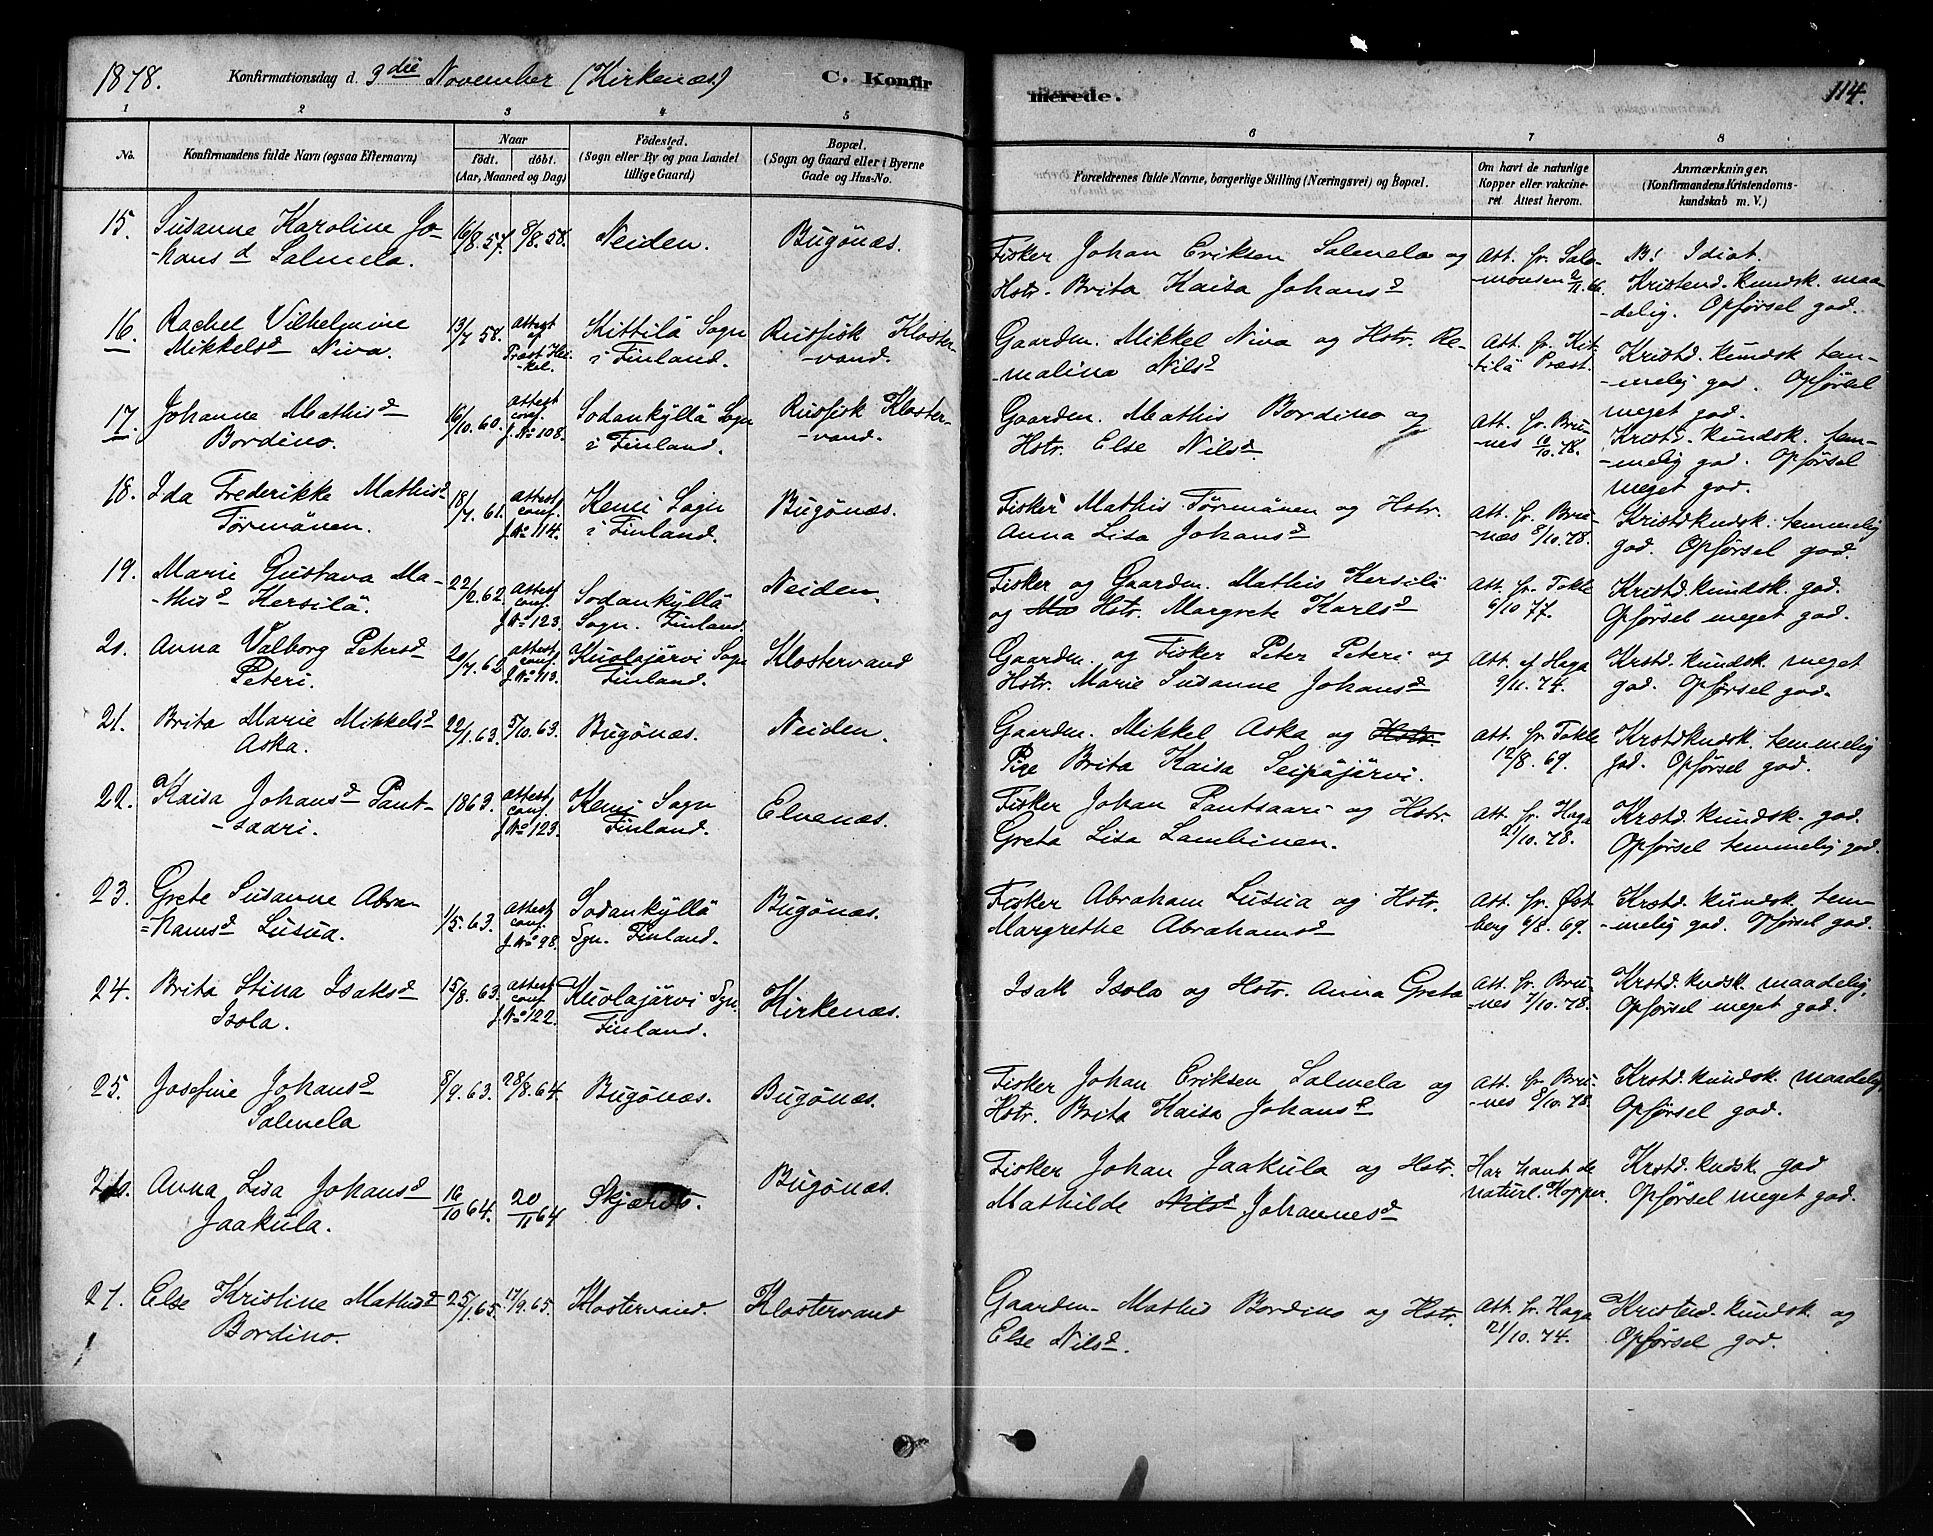 1878. Konfirmationsdag d. 3die November (Kirkenæs) C. Konfir
merede. 114.
1 2 3 4 5
6 7 8
No.
Konfirmandens fulde Navn (ogsaa Efternavn)
Naar
födt. döbt.
(Aar, Maaned og Dag)
Födested.
(Sogn eller By og paa Landet
tillige Gaard)
Bopæl.
(Sogn og Gaard eller i Byerne
Gade og Hus-No.
Forældrenes fulde Navne, borgerlige Stilling (Næringsvei) og Bopæl.
Om havt de naturlige
Kopper eller vakcine-
ret Attest herom.
Anmærkninger.
(Konfirmandens Kristendoms-
kundskab m. V.)
15. Susanne Karoline Jo-
-hansd Salmela.
16/8.57. 8/8.58.
Neiden.
Bugönæs.
Fisker Johan Eriksen Salmela og
Hstr. Brita Kaisa Johansd
Att. fr. Salo-
-monsen 2/11.66.
NB! Idiot.
Kristend. kundsk. maa-
-delig. Opførsel god.
16. Rachel Vilhelmine
Mikkelsd Niva.
13/7 58.
Attest
af
Præst Hei-
-kel.
Kittilä Sogn
i Finland.
Russisk Kloster-
-vand.
Gaardm. Mikkel Niva og Hstr. Re-
-malina Nilsd
Att. fr. Kit-
tilä Præst.
Kristd. kundsk. tem-
-melig god. Opførsel
meget god.
17. Johanne Mathisd
Bordino.
16/10.60.
Attest
conf.
J. No 108.
Sodankyllä Sogn
i Finland.
Russisk Kloster-
-vand.
Gaardm. Mathis Bordino og
Hstr. Else Nilsd
Att. fr. Bru-
-nes 10/10.78.
Kristd. kundsk. tem-
-melig god. Opførsel
meget god.
18. Ida Frederikke Mathisd
Törmänen.
18/7 61.
Attest
conf.
J. No 114.
Kemi Sogn
i Finland.
Bugönæs.
Fisker Mathis Törmänen og Hstr.
Anna Lisa Johansd
Att. fr. Bru-
næs 8/10.78.
Kristdkundsk. temmelig
god. Opførsel god.
19. Marie Gustava Ma-
-thisd Kersilä.
22/2.62.
Attest
conf.
J. No 123.
Sodankyllä
Sogn. Finland.
Neiden.
Fisker og Gaardm. Mathis Kersilä
og Ma Hstr. Margrete Karlsd
Att. fr. Tokle
6/10 77.
Kristd. kundsk. god.
Opførsel meget god.
20. Anna Valborg Petersd
Peteri.
20/7.62
Attest
conf.
J. No 113.
Kuolajärvi Sogn
Finland.
Klostervand
Gaardm. og Fisker Peter Peteri og
Hstr. Marie Susanne Johansd
Att. af Haga
9/11. 74.
Krstd. kundsk. meget
god. Opførsel god.
21. Brita Marie Mikkelsd
Aska.
22/1.63. 5/10.63.
Bugönæs.
Neiden.
Gaardm. Mikkel Aska og Hstr.
Pige Brita Kaisa Seipäjärvi.
Att. fr. Tokle
12/8. 69.
Krstdkudsk. temmelig
god. Opførsel god.
22. Kaisa Johansd Pant-
-saari.
1863.
Attest
conf.
J. No 123.
Kemi Sogn
Finland.
Elvenæs.
Fisker Johan Pantsaari og Hstr.
Greta Lisa Lambinen.
Att. fr. Haga
21/10. 78.
Krstd. kundsk. god.
Opførsel temmelig god.
23. Grete Susanne Abra-
=hamsd Lusua.
1/5.63.
Attest
conf.
J. No 98.
Sodankyllä
Sgn. Finland.
Bugönæs.
Fisker Abraham Lusua og Hstr.
Margrethe Abrahamsd
Att. fr. Øst-
berg 6/8. 69.
Krstd. kundsk. tem-
-melig god. Opførsel god.
24. Brita Stina Isaksd
Isola.
15/8.63.
Attest
conf
J. No 122.
Kuolajärvi Sgn.
Finland.
Kirkenæs.
Isak Isola og Hstr. Anna Greta
Att. fr. Bru-
-nes 7/10.78.
Krstd. kudsk. maadelig.
Opførsel meget god.
25. Josefine Johansd
Salmela
8/9.63. 28/8.64.
Bugönæs.
Bugönæs.
Fisker Johan Eriksen Salmela og
Hstr. Brita Kaisa Johansd
Att. fr. Bru-
-nes 8/10.78.
Krstd. kundsk. maadelig
Opførsel god.
26. Anna Lisa Johansd
Jaakula.
16/10 64. 20/11 64
Bugönæs.
Fisker Johan Jaakula og Hstr.
Mathilde Nilsd Johannesd
Har havt de
naturl. Kopper.
Krstd. kudsk. god
Opførsel meget god.
27. Else Kristine Mathisd
Bordino.
25/1.65. 17/9.65.
Klostervand.
Klostervand
Gaardm. Mathis Bordino og Hstr.
Else Nilsd.
Att. fr. Haga
21/10. 74.
Kristend. kundsk. og
Opførsel god.